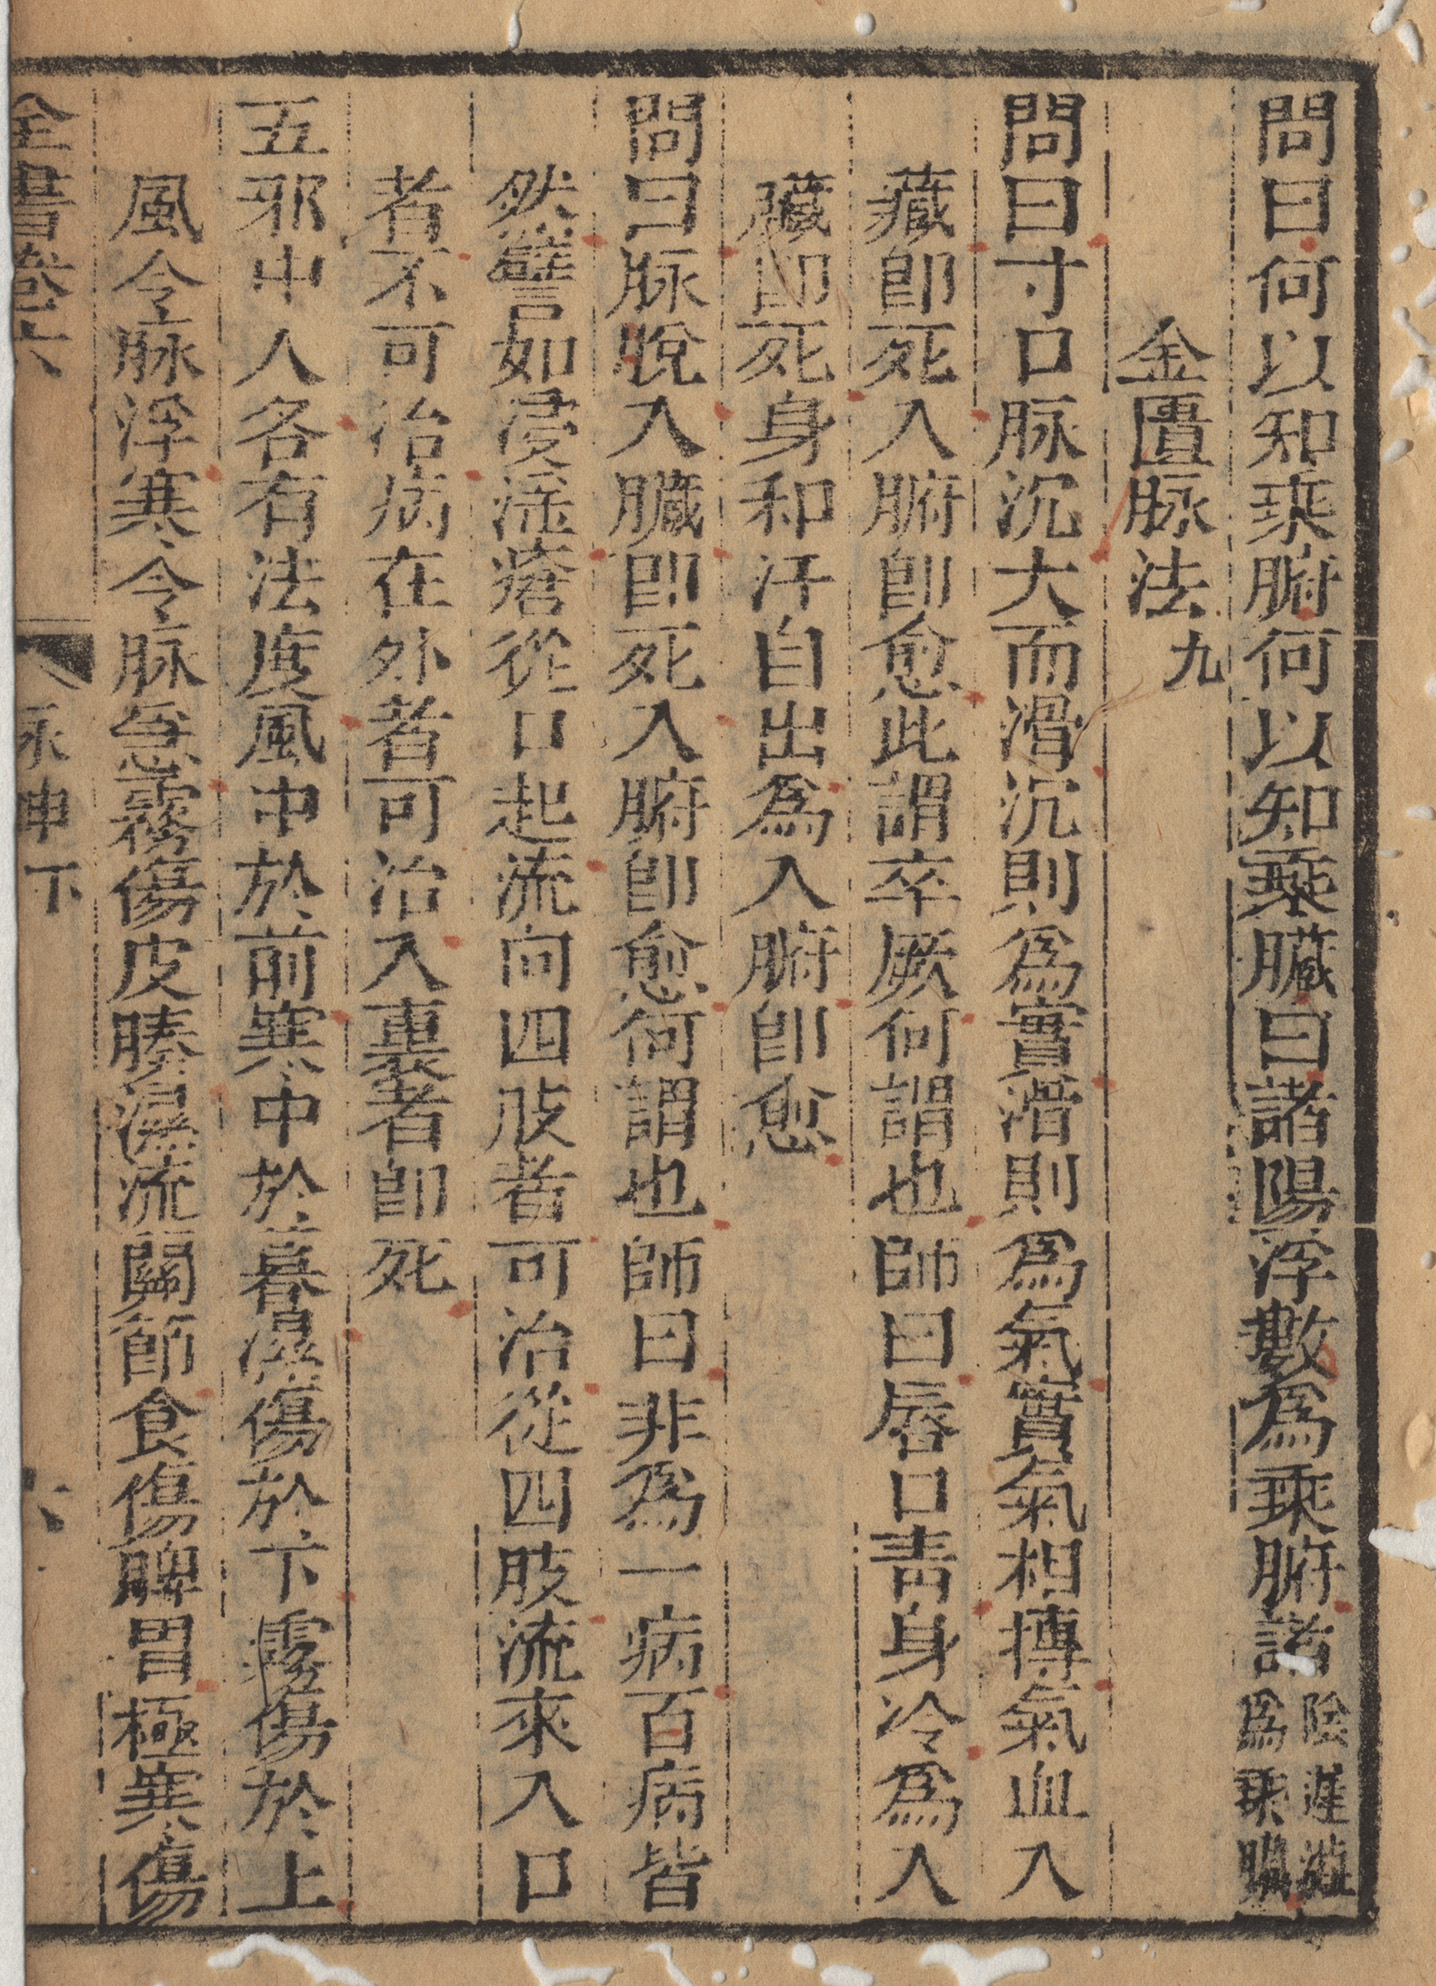 問曰何以知乘腑何以知乘臟曰諸陽浮數爲乘腑諸陰遲濇爲乘臟
金匱脉法九
問曰寸口脉沉大而滑沉則爲實滑則爲氣實氣相摶氣血入
藏卽死入腑卽愈此謂卒厥何謂也師曰唇口靑身冷爲入
臟卽死身和汗自出爲入腑卽愈
問曰脉脫入臟卽死入腑卽愈何謂也師曰非爲一病百病皆
然譬如浸淫瘡從口起流向四肢者可治從四肢流來入口
者不可治病在外者可治入裏者卽死
五邪中人各有法度風中於前寒中於暮濕傷於下霧傷於上
風令脉浮寒令脉急霧傷皮腠濕流關節食傷脾胃極寒傷
全書卷六
永申下
六